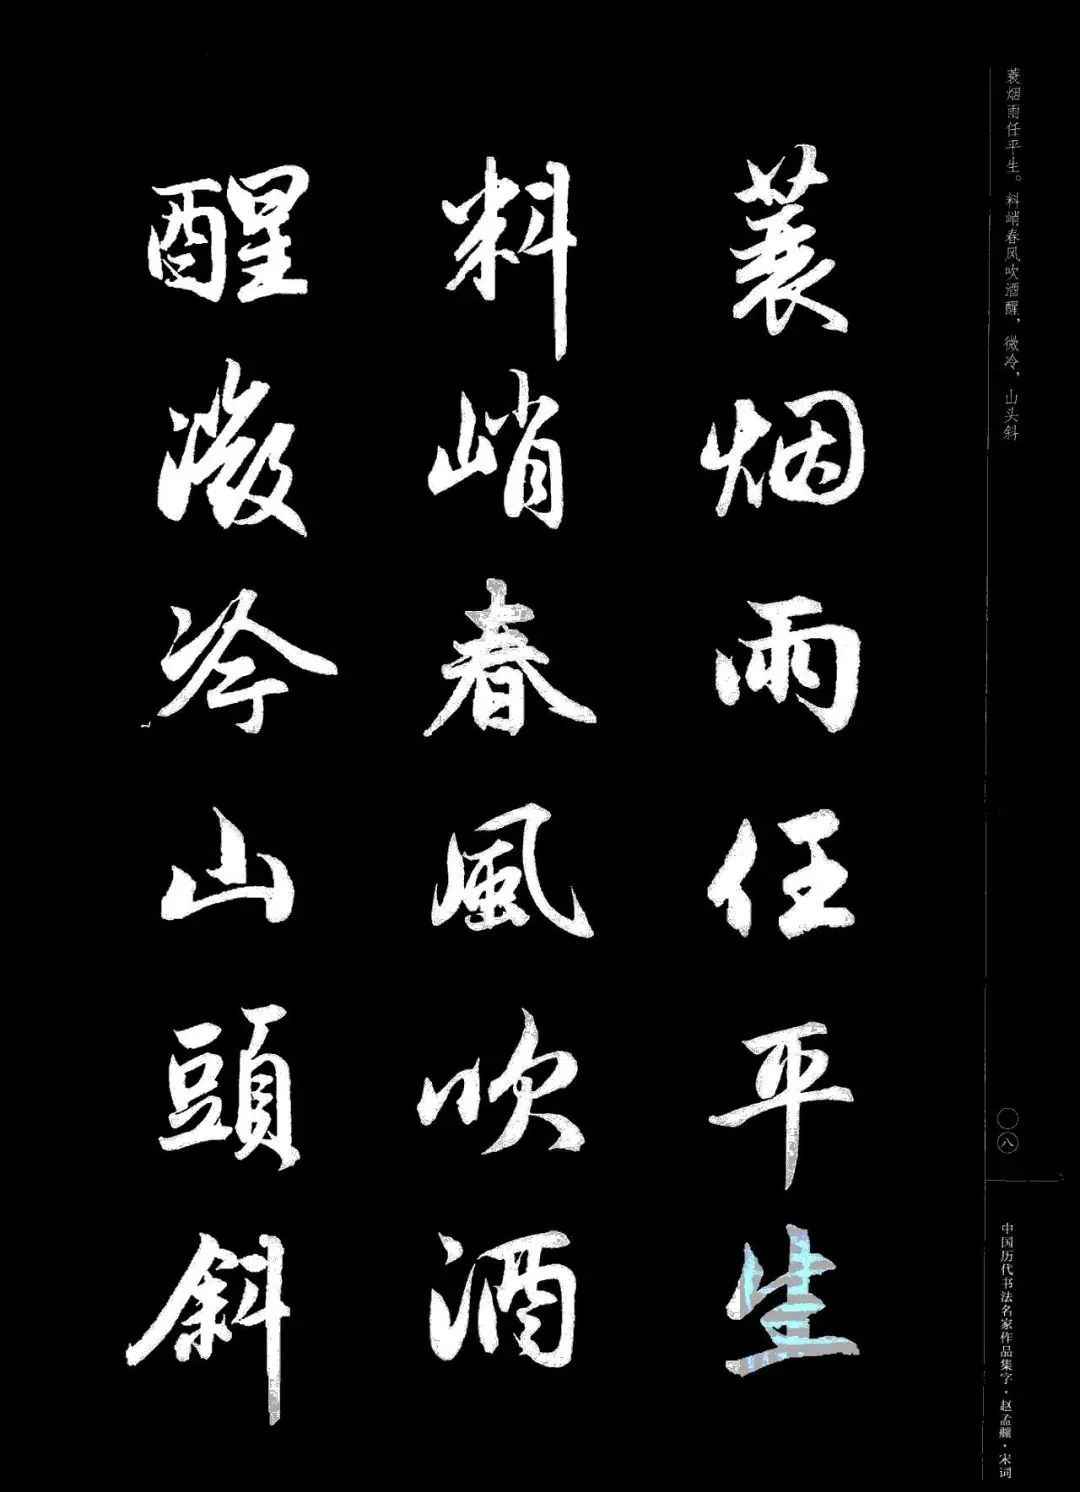 蓑烟雨任平生。料峭春风吹酒醒，微冷，山头斜
蓑烟雨任平生
料峭春風吹酒
醒微冷山頭斜
〇八
中国历代书法名家作品集字·赵孟頫·宋词